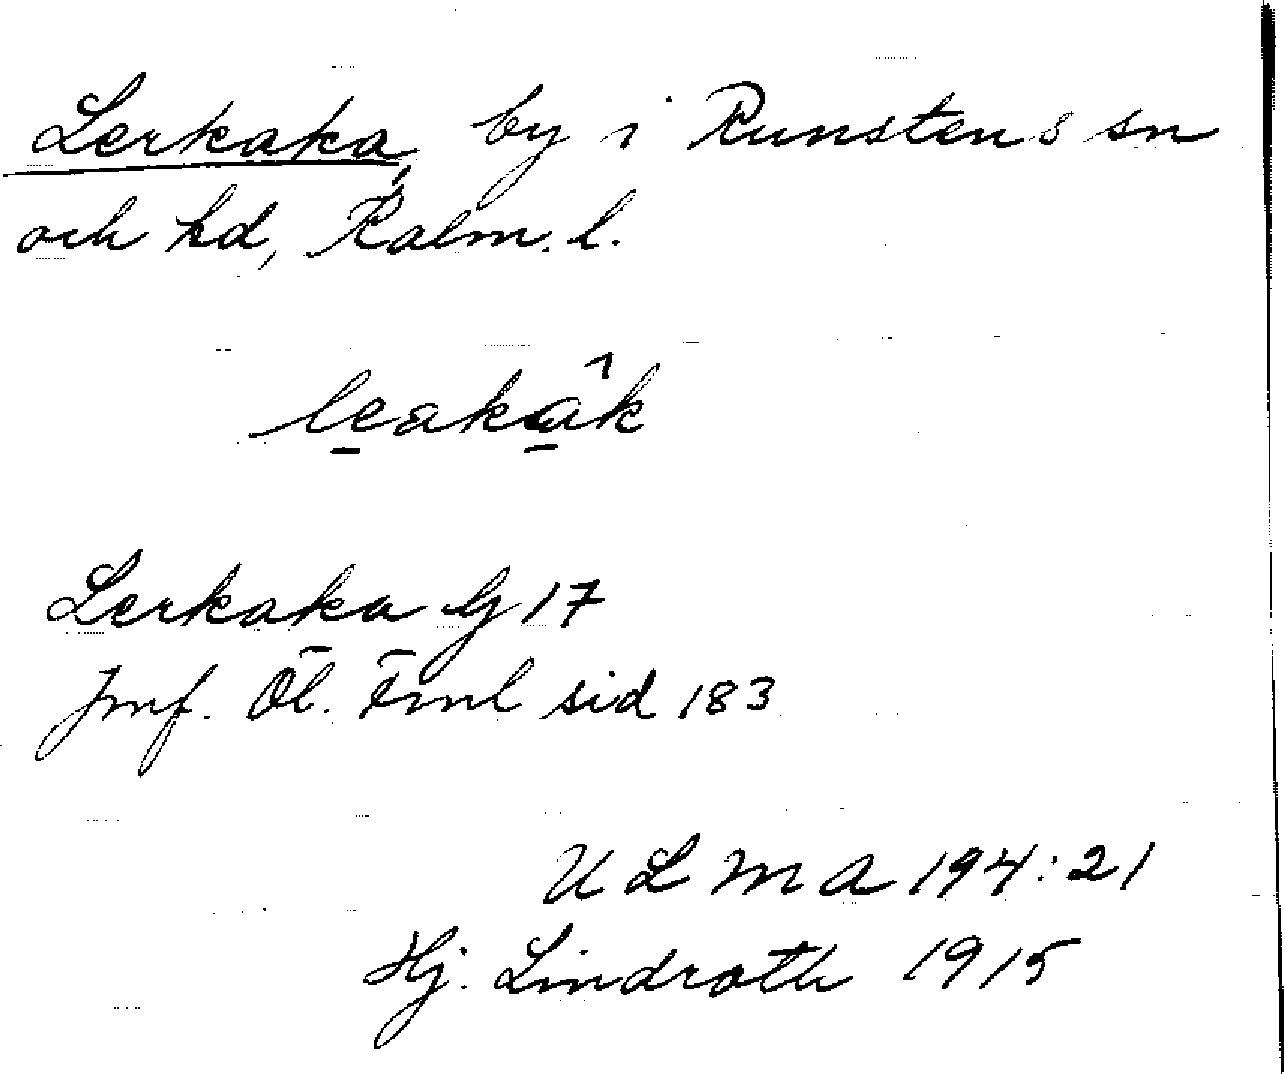 Lerkaka, by i Runstens sn
och hd, Kalm. l.
leakâk
Lerkaka G 17
Jmf. Öl. Fml sid 183
U L M A 194:21
Hj. Lindroth 1915